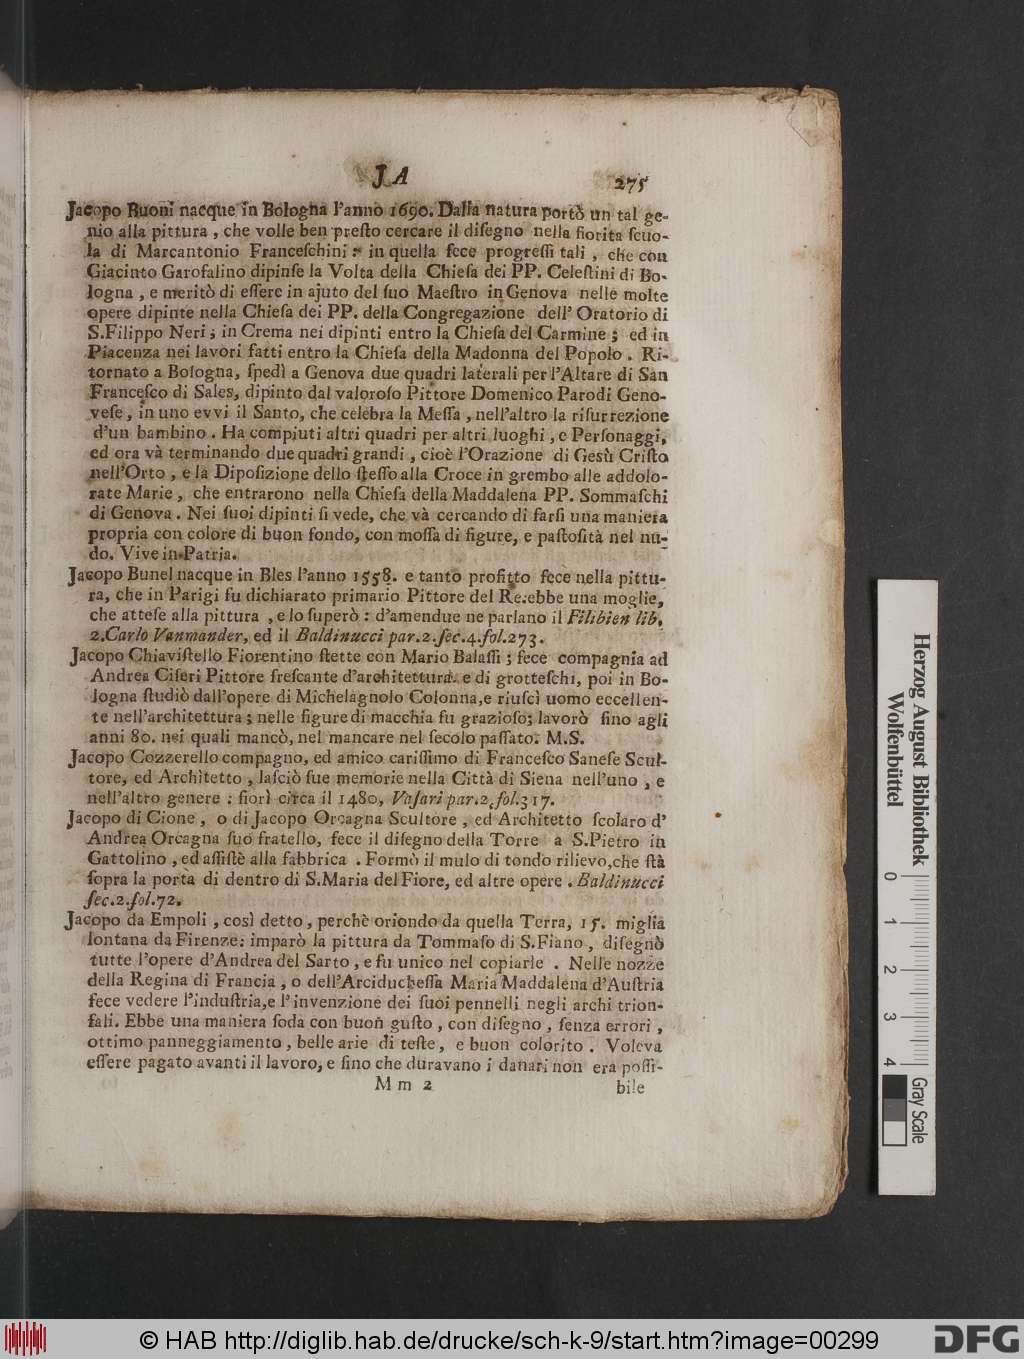 JA
275
Jacopo Buoni nacque in Bologna l'anno 1690. Dalla natura portò un tal ge-
nio alla pittura , che volle ben preſto cercare il diſegno nella fiorita ſcuo-
la di Marcantonio Franceſchini : in quella fece progreſſi tali , che con
Giacinto Garofalino dipinſe la Volta della Chieſa dei PP. Celeſtini di Bo-
logna , e meritò di eſſere in ajuto del ſuo Maeſtro in Genova nelle molte
opere dipinte nella Chieſa dei PP. della Congregazione dell' Oratorio di
S.Filippo Neri ; in Crema nei dipinti entro la Chieſa del Carmine ; ed in
Piacenza nei lavori fatti entro la Chieſa della Madonna del Popolo . Ri-
tornato a Bologna, ſpedì a Genova due quadri laterali per l'Altare di San
Franceſco di Sales, dipinto dal valoroſo Pittore Domenico Parodi Geno-
veſe , in uno evvi il Santo, che celebra la Meſſa , nell'altro la riſurrezione
d'un bambino . Ha compiuti altri quadri per altri luoghi , e Perſonaggi,
ed ora và terminando due quadri grandi , cioè l'Orazione di Gesù Criſto
nell'Orto , e la Dipoſizione dello ſteſſo alla Croce in grembo alle addolo-
rate Marie , che entrarono nella Chieſa della Maddalena PP. Sommaſchi
di Genova . Nei ſuoi dipinti ſi vede, che và cercando di farſi una maniera
propria con colore di buon fondo, con moſſa di figure, e paſtoſità nel nu-
do. Vive in Patria.
Jacopo Bunel nacque in Bles l'anno 1558. e tanto profitto fece nella pittu-
ra, che in Parigi fu dichiarato primario Pittore del Re: ebbe una moglie,
che atteſe alla pittura , e lo ſuperò : d'amendue ne parlano il Filibien lib.
2. Carlo Vanmander, ed il Baldinucci par.2.ſec.4.fol.273.
Jacopo Chiaviſtello Fiorentino ſtette con Mario Balaſſi ; fece compagnia ad
Andrea Ciſeri Pittore freſcante d'architettura, e di grotteſchi, poi in Bo-
logna ſtudiò dall'opere di Michelagnolo Colonna, e riuſcì uomo eccellen-
te nell'architettura ; nelle figure di macchia fu grazioſo; lavorò ſino agli
anni 80. nei quali mancò, nel mancare nel ſecolo paſſato. M.S.
Jacopo Cozzerello compagno, ed amico cariſſimo di Franceſco Saneſe Scul-
tore, ed Architetto , laſciò ſue memorie nella Città di Siena nell'uno , e
nell'altro genere : fiorì circa il 1480, Vaſari par.2.fol.317.
Jacopo di Cione , o di Jacopo Orcagna Scultore , ed Architetto ſcolaro d'
Andrea Orcagna ſuo fratello, fece il diſegno della Torre a S.Pietro in
Gattolino , ed aſſiſtè alla fabbrica . Formò il mulo di tondo rilievo, che ſtà
ſopra la porta di dentro di S.Maria del Fiore, ed altre opere . Baldinucci
ſec.2.fol.72.
Jacopo da Empoli , così detto , perchè oriondo da quella Terra, 15. miglia
lontana da Firenze: imparò la pittura da Tommaſo di S.Fiano , diſegnò
tutte l'opere d'Andrea del Sarto , e fu unico nel copiarle . Nelle nozze
della Regina di Francia , o dell'Arciducheſſa Maria Maddalena d'Auſtria
fece vedere l'induſtria, e l'invenzione dei ſuoi pennelli negli archi trion-
fali. Ebbe una maniera ſoda con buon guſto , con diſegno , ſenza errori ,
ottimo panneggiamento , belle arie di teſte , e buon colorito . Voleva
eſſere pagato avanti il lavoro, e ſino che duravano i danari non era poſſi-
M m 2
bile
Herzog August Bibliothek
Wolfenbüttel
0 1 2 3 4
Gray Scale
© HAB http://diglib.hab.de/drucke/sch-k-9/start.htm?image=00299
DFG